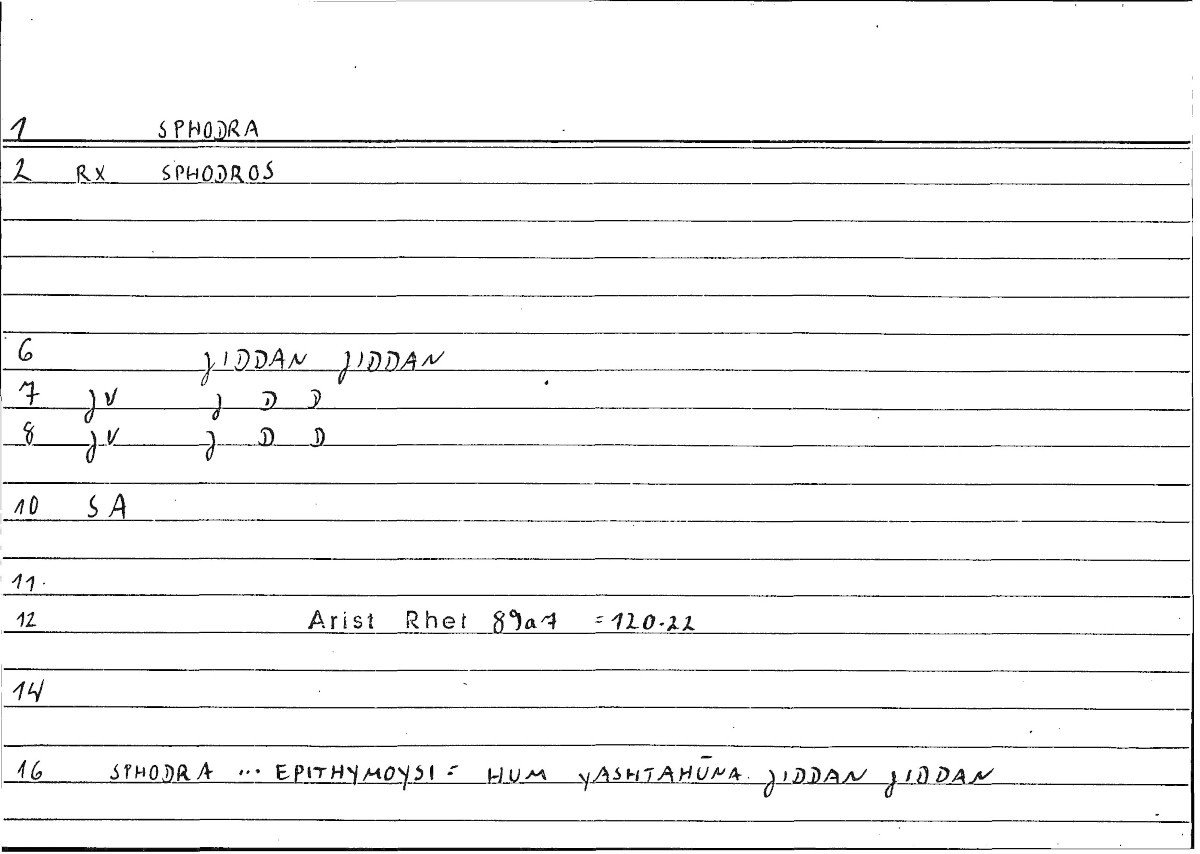 1 SPHODRA
2 RX SPHODROS
6 JIDDAN JIDDAN
7 JV J D D
8 JV J D D
10 SA
11.
12 Arist Rhet 89a7 =120.22
14
16 SPHODRA ... EPITHYMOYSI = HUM YASHTAHŪNA JIDDAN JIDDAN